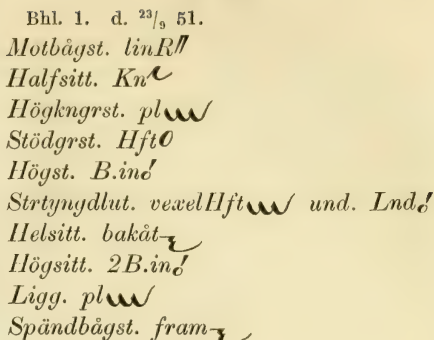 Bhl. 1. d. 23/9 51.
Motbågst. linR
Halfsitt. Kn
Högkngrst. pl
Stödgrst. Hft
Högst. B.in
Strtyngdlut. vexelHft und. Lnd.
Helsitt. bakåt
Högsitt. 2B.in
Ligg. pl
Spändbågst. fram